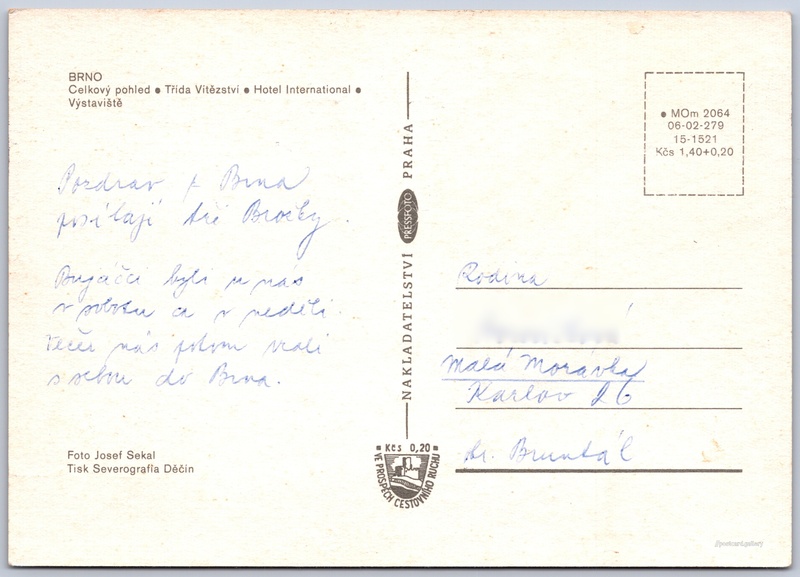 BRNO
Celkový pohled ● Třída Vítězství ● Hotel International ●
Výstaviště
● MOm 2064
06-02-279
15-1521
Kčs 1,40+0,20
Pozdrav z Brna
posílají tři
Bugáčci byli u nás
v sobotu a v neděli.
Večer nás potom vzali
s sebou do Brna.
NAKLADATELSTVÍ PRESSFOTO PRAHA
Rodina
Malá Morávka
Karlov 26
okr. Bruntál
Foto Josef Sekal
Tisk Severografia Děčín
Kčs 0,20
VE PROSPĚCH CESTOVNÍHO RUCHU